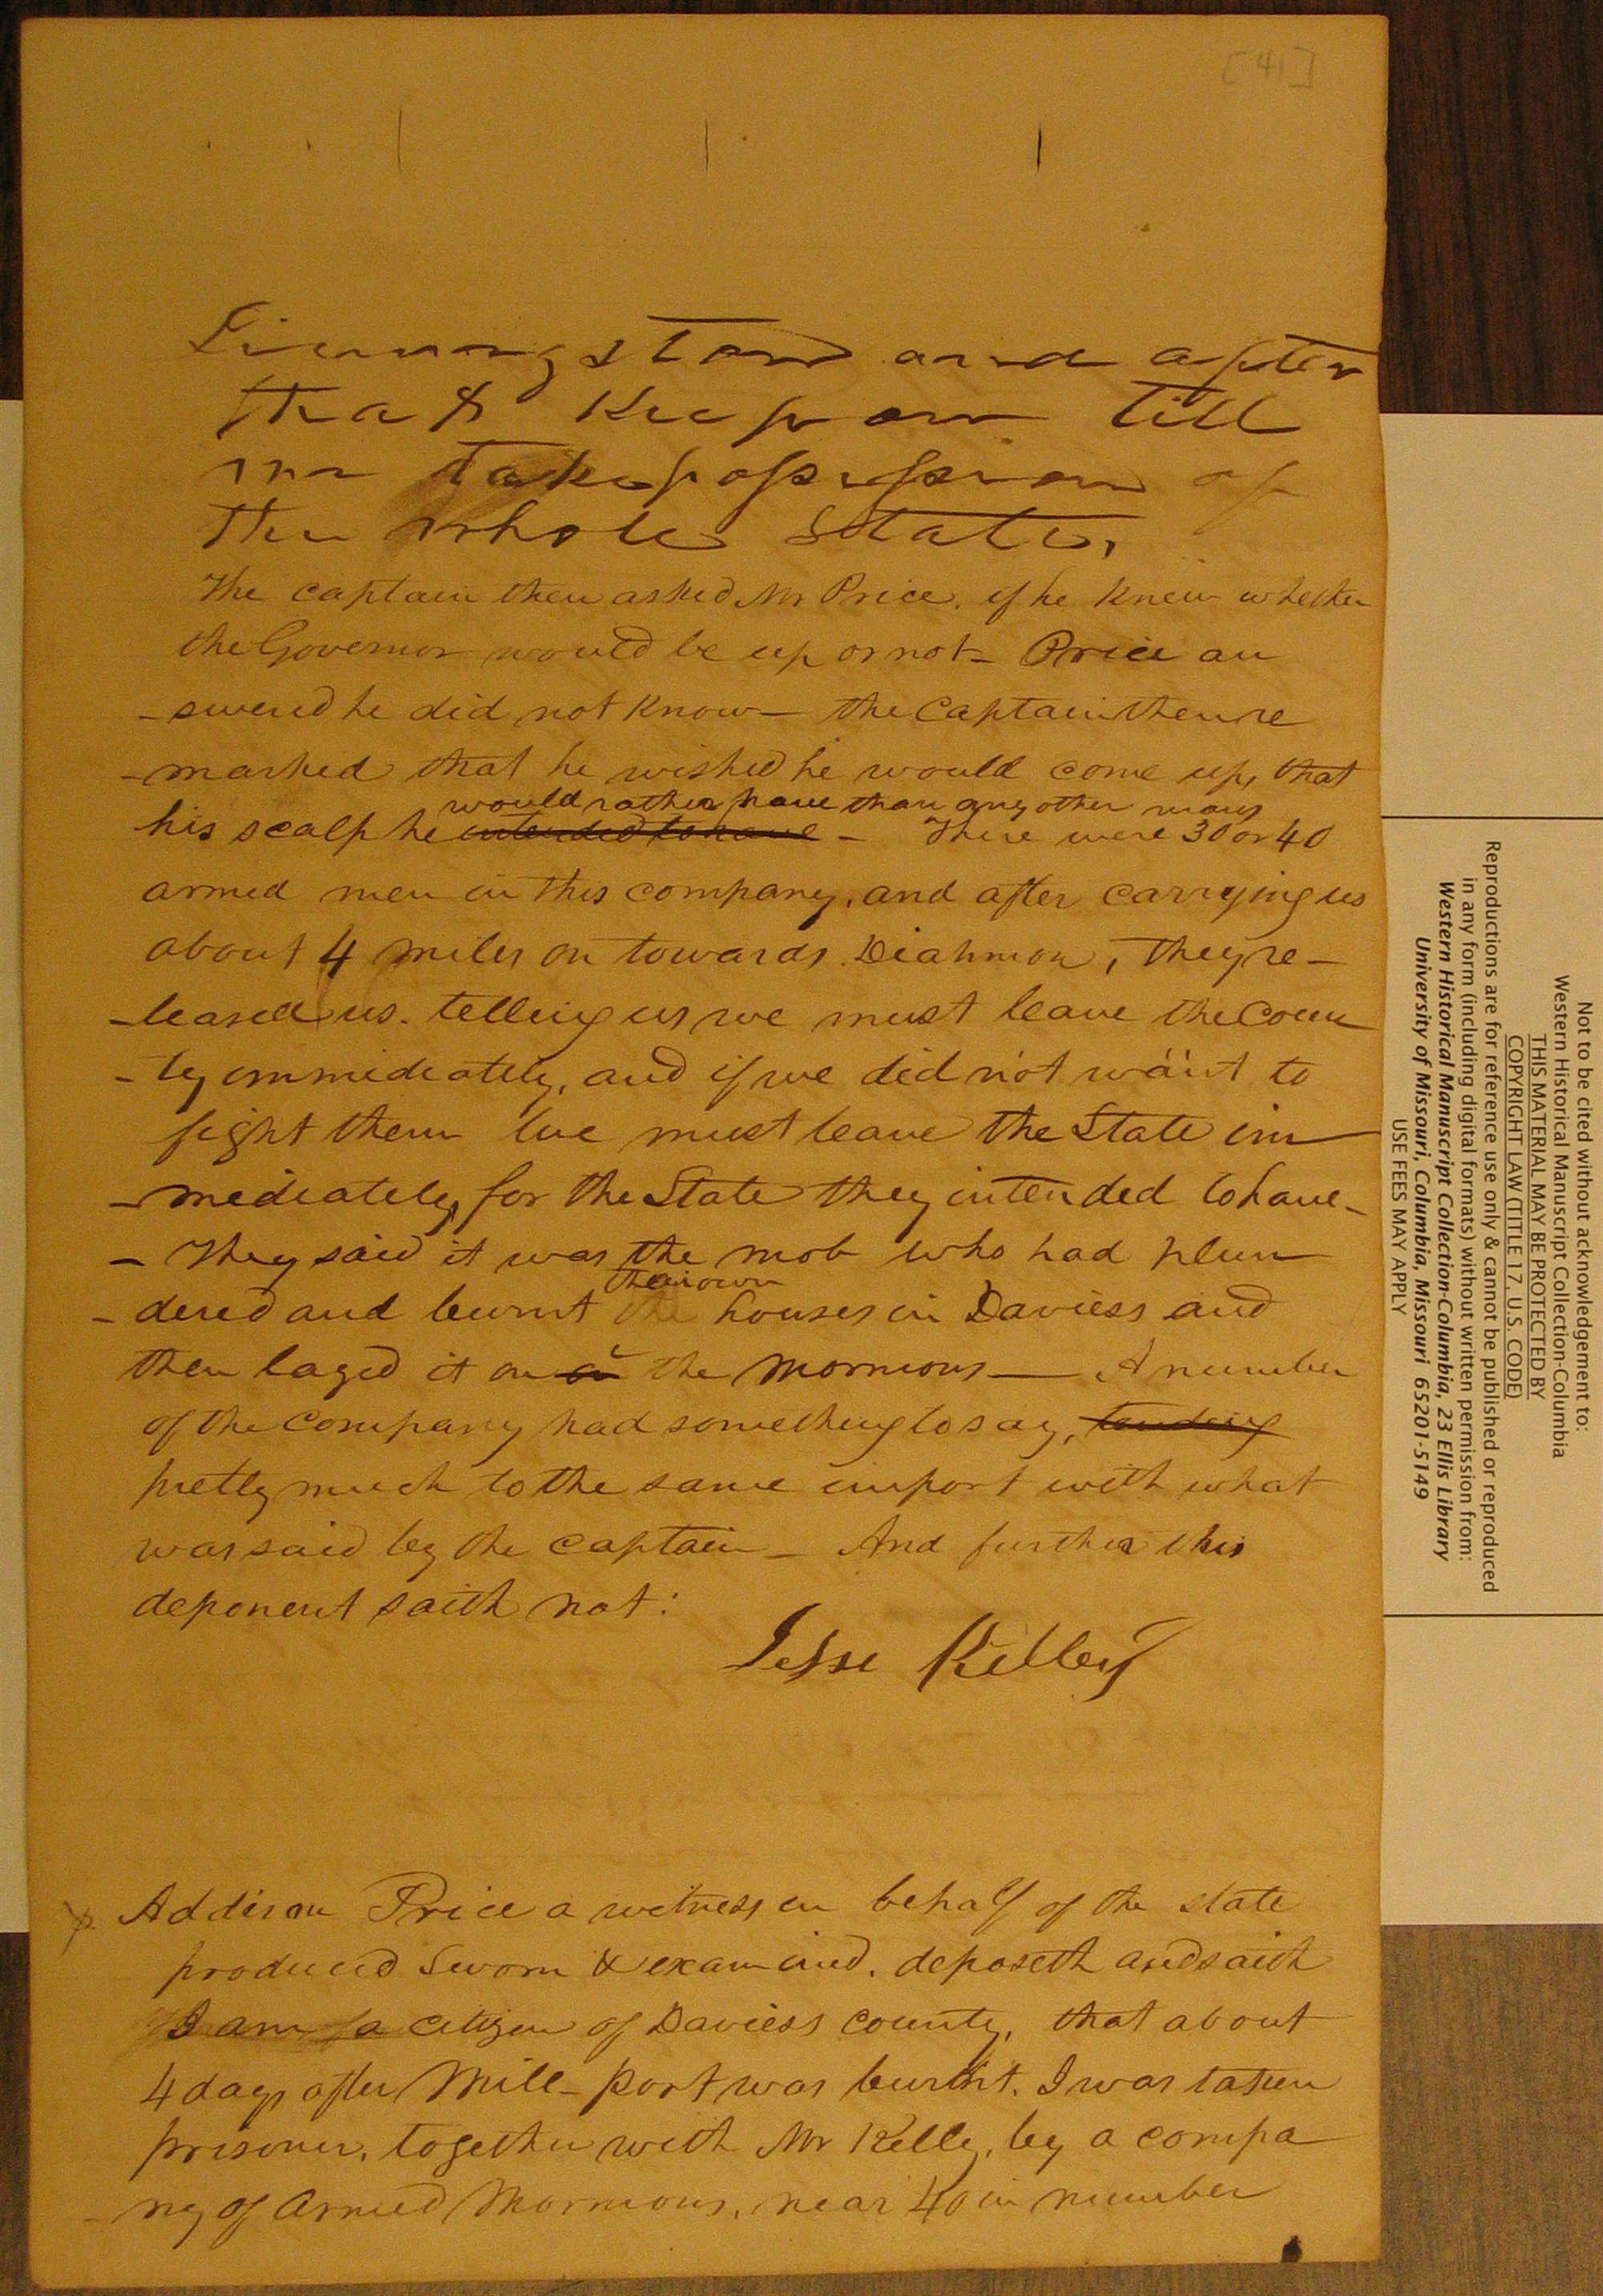 [41]
Livingston and after
that keep on till
we take possession of
the whole State,
The captain then asked Mr Price, if he knew whether
the Governor would be up or not- Price an
-swered he did not know- the Captain then re
-marked that he wished he would come up, that
would rather have than any other mans
his scalp he intended to have - There were 30 or 40
armed men in this company, and after carrying us
about 4 miles on towards Diahmon, they re-
-leased us. telling us we must leave the Coun
-ty immediately, and if we did not want to
fight them we must leave the State im
-mediately, for the State they intended to have-
- They said it was the mob who had plun
their own
-dered and burnt the houses in Daviess and
then layed it on the Mormons- A number
of the company had something to say, tending
pretty much to the same import with what
was said by the captain- And further this
deponent saith not:
Jesse Kelley
Addison Price a witness in behalf of the state
produced Sworn & examined. deposeth and saith
I am a citizen of Daviess county, that about
4 days after Mill-port was burnt. I was taken
prisoner, together with Mr Kelly, by a compa
-ny of Armed Mormons, near 40 in number
Not to be cited without acknowledgement to:
Western Historical Manuscript Collection-Columbia
THIS MATERIAL MAY BE PROTECTED BY
COPYRIGHT LAW (TITLE 17, U.S. CODE)
Reproductions are for reference use only & cannot be published or reproduced
in any form (including digital formats) without written permission from:
Western Historical Manuscript Collection-Columbia, 23 Ellis Library
University of Missouri, Columbia, Missouri 65201-5149
USE FEES MAY APPLY